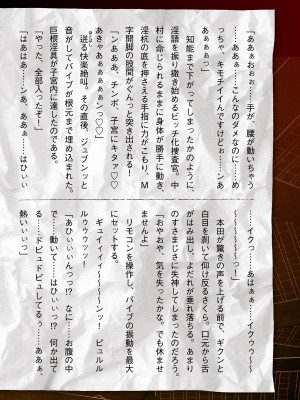 「ああぁおぉぉ……手が、腰が動いちゃう
……ああぁ……こんなのダメなのに……め
っちゃ、キモチイイんですけどぉ……ンあ
あぁぁっ」
知能まで下がってしまったかのように、
淫語を振り撒き始めるビッチ捜査官。中
村に命じられるままに身体が勝手に動き、
淫杭の底を押さえる手指に力がこもり、Ｍ
字開脚の股間がぐんっと突き出される！
「ンあああ、チンポ、子宮にキタァ♡♡
あきゃあぁぁぁぁンっ♡」
迸る快楽絶叫。その直後、ジュブンッと
音がしてバイブが根元まで埋め込まれた。
巨根淫具が子宮内に達したのである。
「やった、全部入ったぞ！」
「はあはあ……ンあ、ああぁ……はひぃぃ
……イクっ……あはぁぁ……イクゥゥ～～
～～～～～っ！」
本田が驚きの声を上げる前で、ギクンと
白目を剥いて仰け反るさくら。口元から舌
がはみ出し、よだれが垂れ落ちる。あまり
のすさまじさに失神してしまったのだろう。
「おやおや、気を失ったかな。でも休ませ
ませんよ」
リモコンを操作し、バイブの振動を最大
にセットする。
ギュイィィィ～～～～ンッ！　ビュルル
ルゥゥゥッ！
「あひぃぃんっっ!?　なに……お腹の中
で……動いて……はひぃぃっ!?　何か出て
る……ドビュドビュしてるぅ……ああぁ、
熱いぃぃっ」